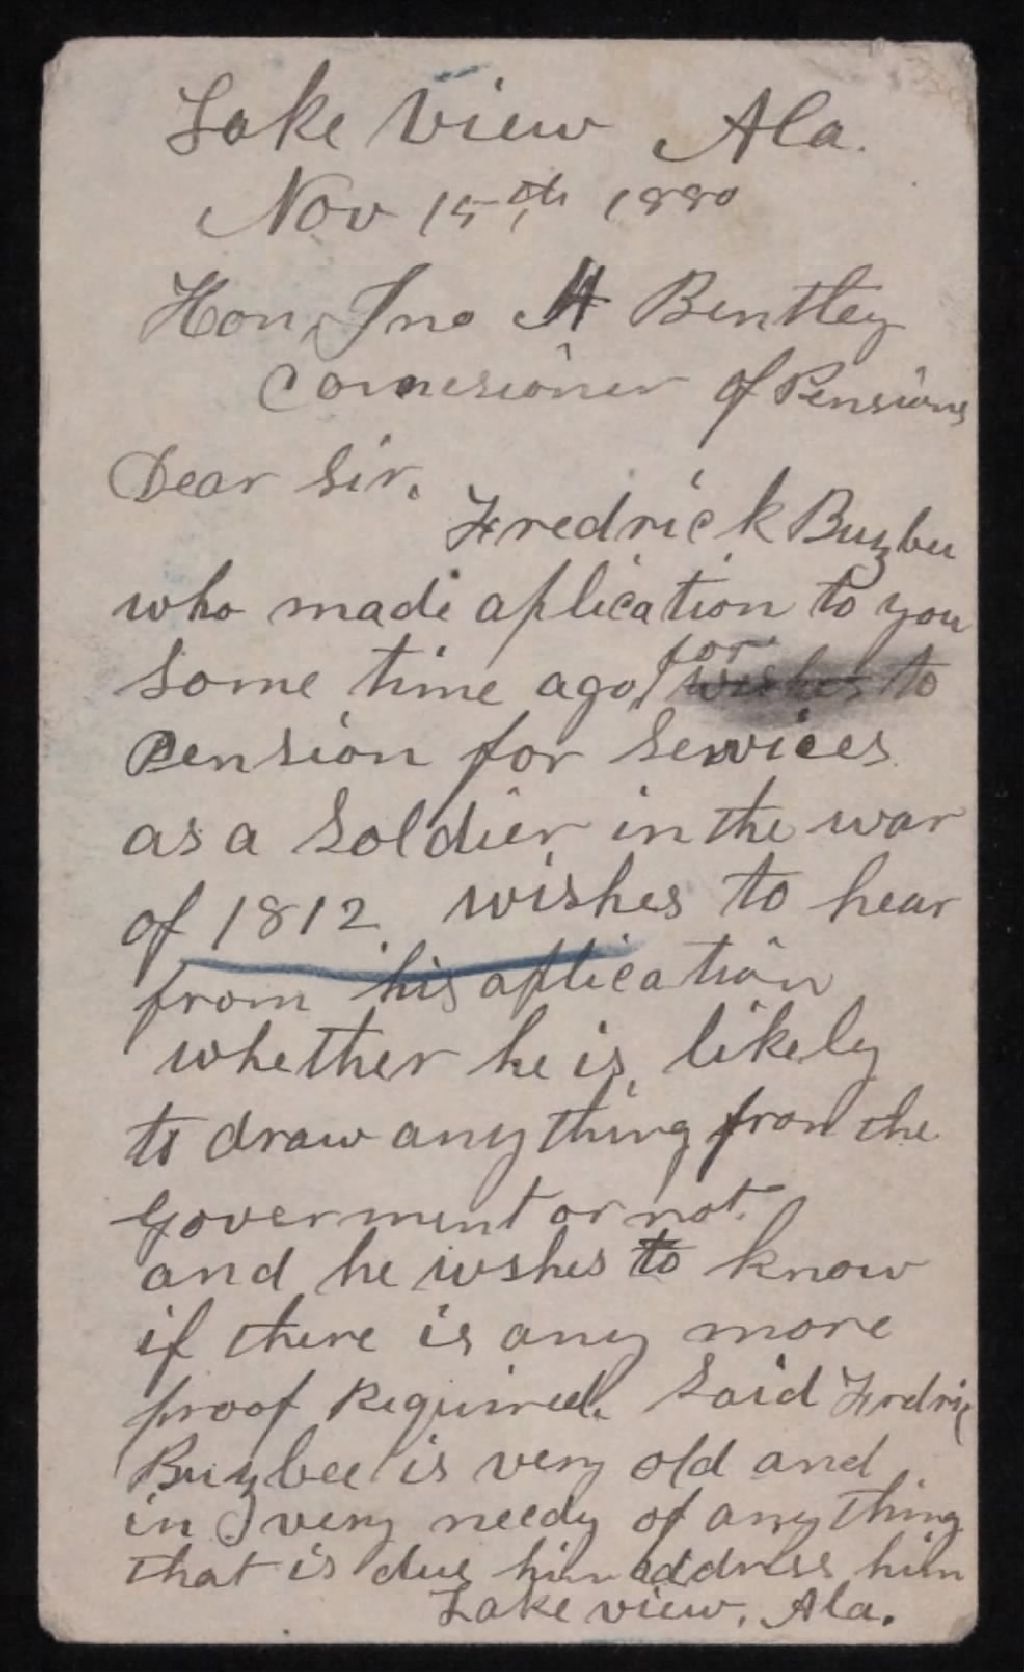 Lake View Ala.
Nov 15th 1880
Hon Jno A Bentley
Comesioner of Pensions
Dear Sir.
Fredrick Buzbee
who made aplication to you
some time ago for wishes to
Pension for Services
as a Soldier in the war
of 1812. wishes to hear
from his aplication
whether he is, likely
to draw any thing from the
Goverment or not.
and he wshes to know
if there is any more
proof Required. Said Fredric
Buzbee is very old and
in very needy of any thing
that is due him address him
Lake view, Ala.